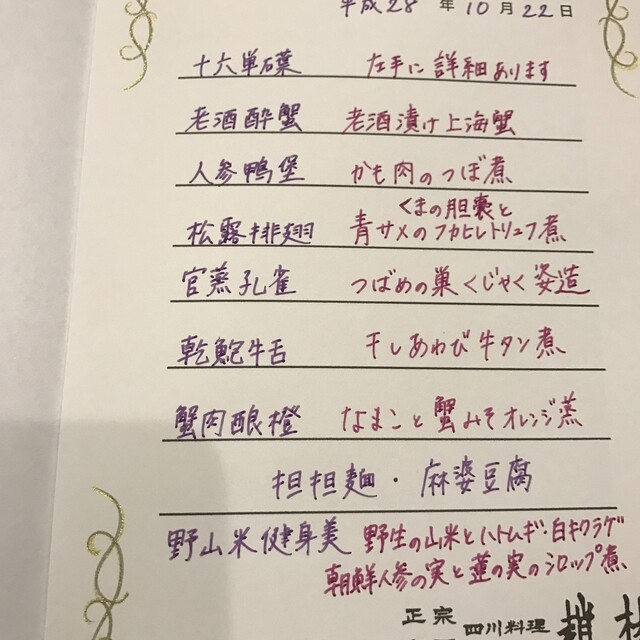 平成28年10月22日
十六単碟 左手に詳細あります
老酒酔蟹 老酒漬け上海蟹
人参鴨堡 かも肉のつぼ煮
くまの胆嚢と
松露排翅 青サメのフカヒレトリュフ煮
官燕孔雀 つばめの巣くじゃく姿造
乾鮑牛舌 干しあわび牛タン煮
蟹肉酿橙 なまこと蟹みそオレンジ蒸
担担麺・麻婆豆腐
野山米健身美 野生の山米とハトムギ・白キクラゲ
朝鮮人参の実と蓮の実のシロップ煮
正宗 四川料理 趙